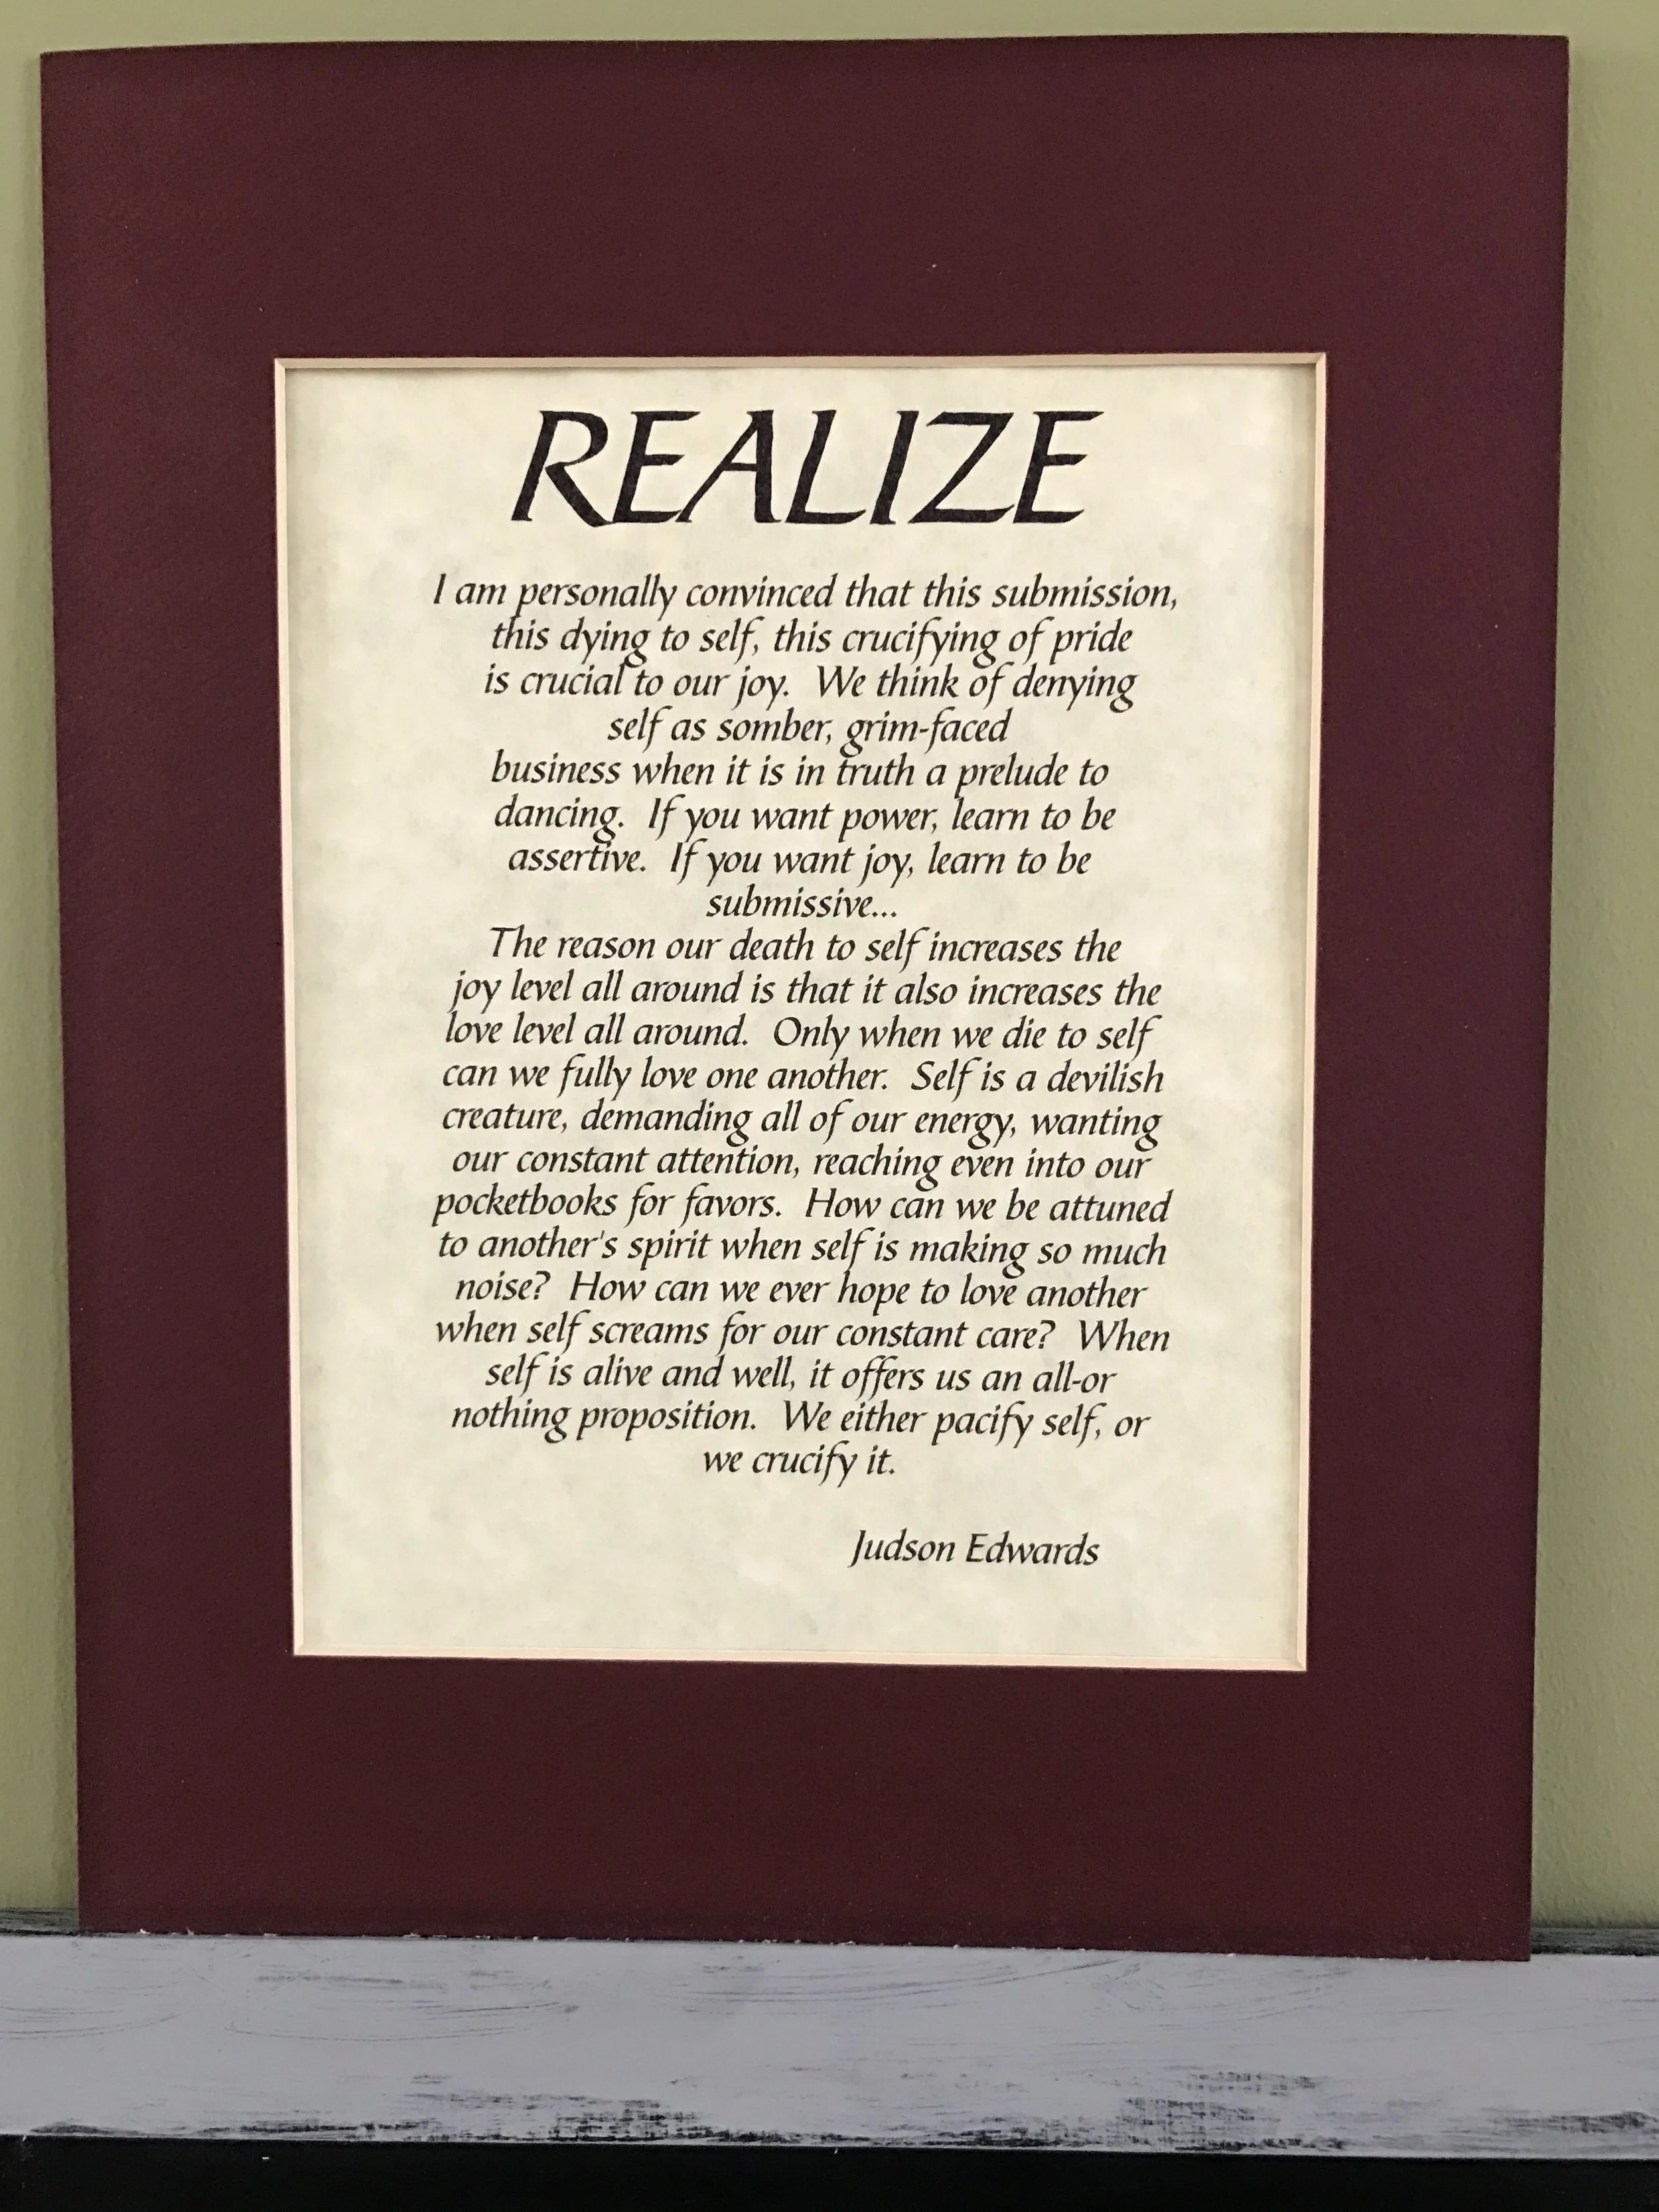 REALIZE
I am personally convinced that this submission,
this dying to self, this crucifying of pride
is crucial to our joy.  We think of denying
self as somber, grim-faced
business when it is in truth a prelude to
dancing.  If you want power, learn to be
assertive.  If you want joy, learn to be
submissive...
The reason our death to self increases the
joy level all around is that it also increases the
love level all around.  Only when we die to self
can we fully love one another.  Self is a devilish
creature, demanding all of our energy, wanting
our constant attention, reaching even into our
pocketbooks for favors.  How can we be attuned
to another's spirit when self is making so much
noise?  How can we ever hope to love another
when self screams for our constant care?  When
self is alive and well, it offers us an all-or
nothing proposition.  We either pacify self, or
we crucify it.
Judson Edwards